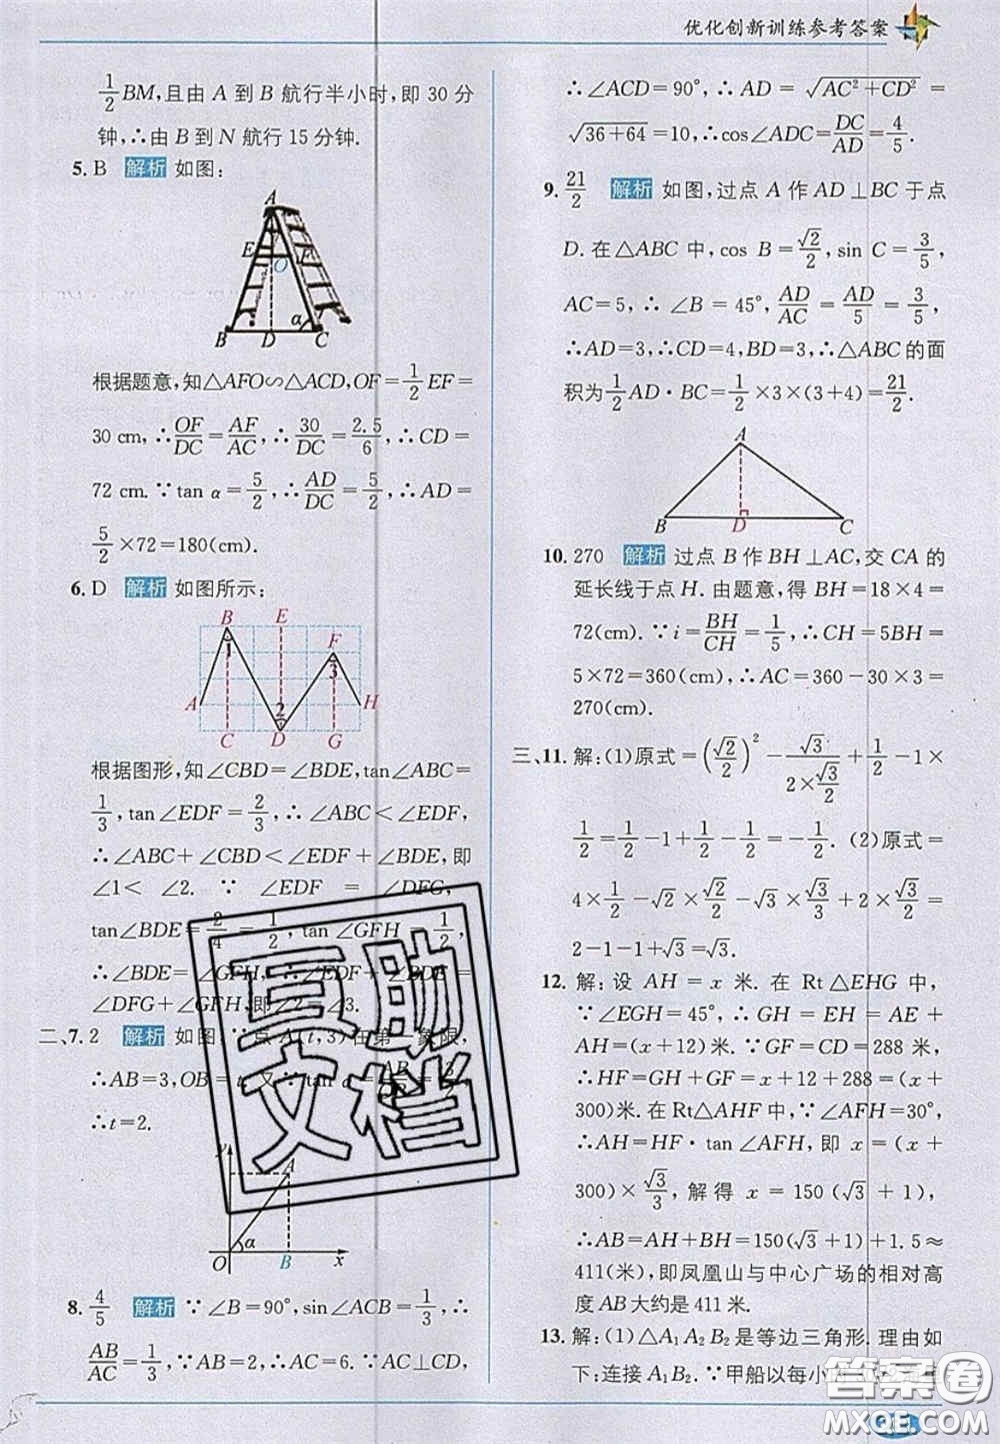 优化创新训练参考答案
1/2 BM,且由 A 到 B 航行半小时,即 30 分
钟,∴由 B 到 N 航行 15 分钟.
5. B 解析 如图:
A
E F
O
α
B D C
根据题意,知△AFO∽△ACD,OF=1/2 EF=
30 cm,∴OF/DC=AF/AC,∴30/DC=2.5/6,∴CD=
72 cm.∵tan α=5/2,∴AD/DC=5/2,∴AD=
5/2×72=180(cm).
6. D 解析 如图所示:
B E
F
1 3
A 2 H
C D G
根据图形,知∠CBD=∠BDE,tan∠ABC=
1/3,tan∠EDF=2/3,∴∠ABC<∠EDF,
∴∠ABC+∠CBD<∠EDF+∠BDE,即
∠1<∠2.∵∠EDF=∠DFG,
tan∠BDE=2/4=1/2,tan∠GFH=1/2,
∴∠BDE=∠GFH,∴∠EDF+∠BDE=
∠DFG+∠GFH,即∠2=∠3.
二、7. 2 解析 如图,∵点 A(t,3)在第一象限,
∴AB=3,OB=t.又∵tan α=
∴t=2.
y
A
α
O B x
8. 4/5 解析 ∵∠B=90°,sin∠ACB=1/3,∴
AB/AC=1/3,∵AB=2,∴AC=6.∵AC⊥CD,
∴∠ACD=90°,∴AD=√(AC²+CD²)=
√(36+64)=10,∴cos∠ADC=DC/AD=4/5.
9. 21/2 解析 如图,过点 A 作 AD⊥BC 于点
D.在△ABC 中,cos B=√2/2,sin C=3/5,
AC=5,∴∠B=45°,AD/AC=AD/5=3/5,
∴AD=3,∴CD=4,BD=3,∴△ABC 的面
积为1/2 AD·BC=1/2×3×(3+4)=21/2.
A
B D C
10. 270 解析 过点 B 作 BH⊥AC,交 CA 的
延长线于点 H.由题意,得 BH=18×4=
72(cm).∵i=BH/CH=1/5,∴CH=5BH=
5×72=360(cm).∴AC=360-30×3=
270(cm).
三、11. 解:(1)原式=(√2/2)²-√3/(2×√3/2)+1/2-1×
1/2=1/2-1+1/2-1/2=-1/2.(2)原式=
4×1/2-√2×√2/2-√3×√3/3+2×√3/2=
2-1-1+√3=√3.
12. 解:设 AH=x 米.在 Rt△EHG 中,
∵∠EGH=45°,∴GH=EH=AE+
AH=(x+12)米.∵GF=CD=288 米,
∴HF=GH+GF=x+12+288=(x+
300)米.在 Rt△AHF 中,∵∠AFH=30°,
∴AH=HF·tan∠AFH,即 x=(x+
300)×√3/3,解得 x=150(√3+1),
∴AB=AH+BH=150(√3+1)+1.5≈
411(米),即凤凰山与中心广场的相对高
度 AB 大约是 411 米.
13. 解:(1)△A₁A₂B₂是等边三角形.理由如
下:连接 A₁B₂.∵甲船以每小
互助
文档
答案卷
MXQE.COM